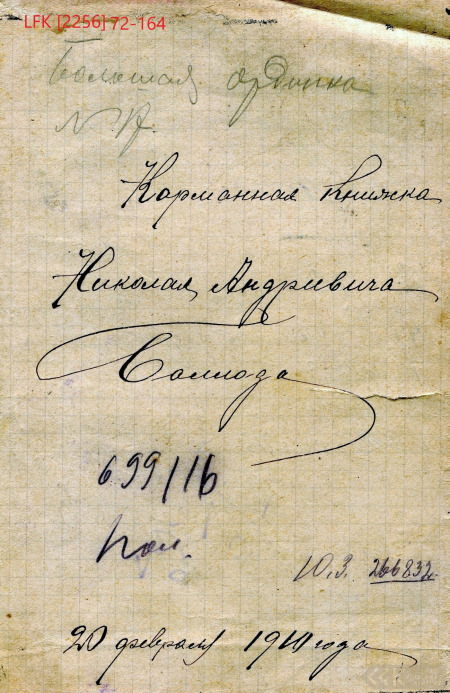 LFK [2256] 72-164
Большая ординка
Карманная Книжка
Николая Андриевича
699/16
Ю.З. 266832
20 февраля 1910 года